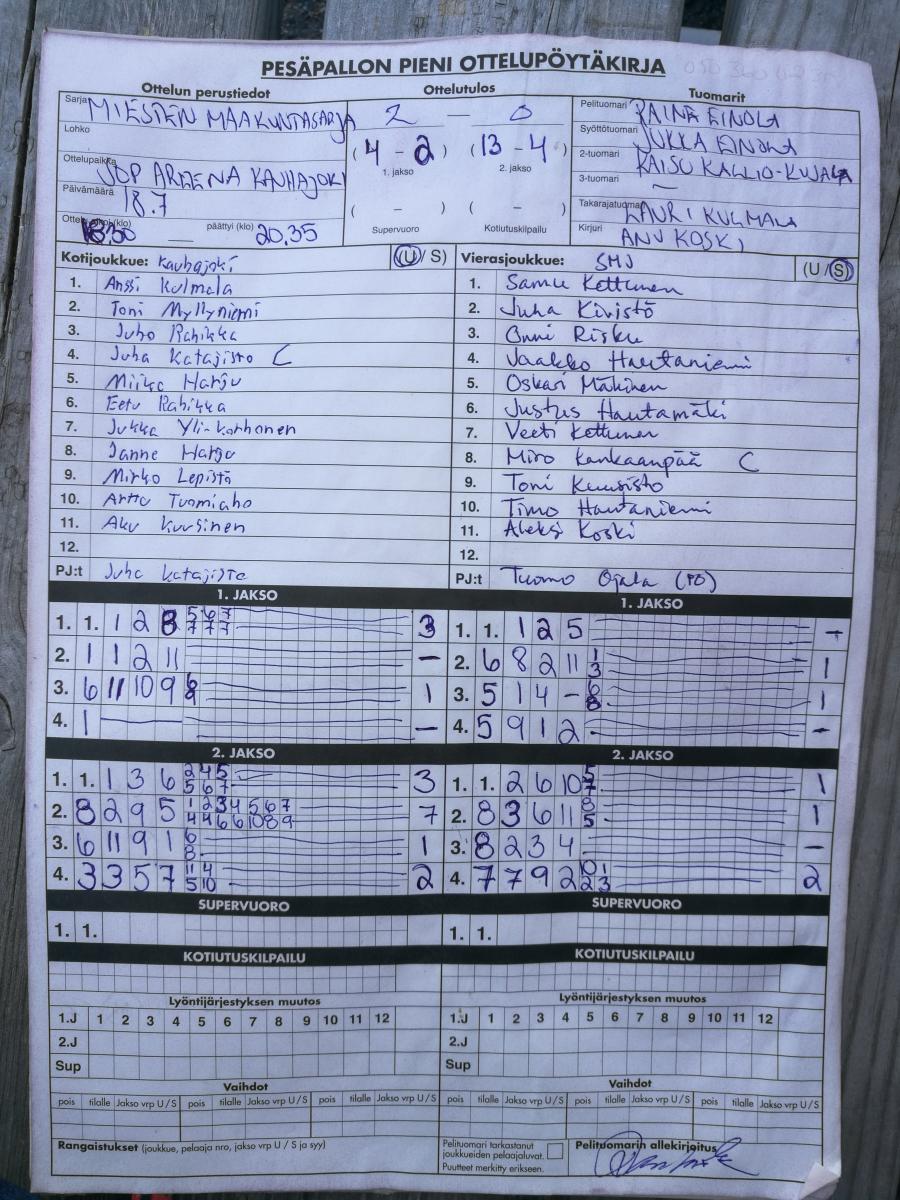 PESÄPALLON PIENI OTTELUPÖYTÄKIRJA
Ottelun perustiedot Ottelutulos Tuomarit
Sarja MIESTEN MAAKUNTASARJA 2 — 0 Pelituomari RAINE EINOLA
Lohko Syöttötuomari JUKKA EINOLA
( 4 - 2 ) ( 13 - 4 ) 2-tuomari KAISU KALLIO-KUJALA
Ottelupaikka JOP AREENA KAUHAJOKI 1. jakso 2. jakso 3-tuomari —
Päivämäärä 18.7 Takarajatuomari LAURI KULMALA
Ottelu alkoi (klo) 18.30 — päättyi (klo) 20.35 ( - ) ( - ) Kirjuri ANU KOSKI
Supervuoro Kotiutuskilpailu
Kotijoukkue: Kauhajoki (U/ S) Vierasjoukkue: SMJ (U / S)
1. Anssi Kulmala 1. Samu Kettunen
2. Toni Myllyniemi 2. Juha Kivistö
3. Juho Rahikka 3. Onni Risku
4. Juha Katajisto C 4. Jaakko Hautaniemi
5. Miika Harju 5. Oskari Mäkinen
6. Eetu Rahikka 6. Justus Hautamäki
7. Jukka Yli-Korhonen 7. Veeti Kettunen
8. Janne Harju 8. Miro Kankaanpää C
9. Mirko Lepistö 9. Toni Kuusisto
10. Arttu Tuomiaho 10. Timo Hautaniemi
11. Aku Kuusinen 11. Aleksi Koski
12. 12.
PJ:t Juha Katajisto PJ:t Tuomo Ojala (PO)
1. JAKSO 1. JAKSO
1. 1. 1 2 8 5 6 7 3 1. 1. 1 2 5 -
7 7 7
2. 1 1 2 11 — 2. 6 8 2 11 1 3 1
3. 6 11 10 9 6 9 1 3. 5 1 4 - 6 8 1
4. 1 — - 4. 5 9 1 2 -
2. JAKSO 2. JAKSO
1. 1. 1 3 6 2 4 5 3 1. 1. 2 6 10 5 7 1
5 6 7
2. 8 2 9 5 1 2 3 4 5 6 7 7 2. 8 3 6 11 8 5 1
4 4 6 6 10 8 9
3. 6 11 9 1 6 8 1 3. 8 2 3 4 -
4. 3 3 5 7 11 4 2 4. 7 7 9 2 10 1 2
5 10 2 3
SUPERVUORO SUPERVUORO
1. 1. 1. 1.
KOTIUTUSKILPAILU KOTIUTUSKILPAILU
Lyöntijärjestyksen muutos Lyöntijärjestyksen muutos
1.J 1 2 3 4 5 6 7 8 9 10 11 12 1.J 1 2 3 4 5 6 7 8 9 10 11 12
2.J 2.J
Sup Sup
Vaihdot Vaihdot
pois tilalle Jakso vrp U / S pois tilalle Jakso vrp U / S pois tilalle Jakso vrp U / S pois tilalle Jakso vrp U / S pois tilalle Jakso vrp U / S pois tilalle Jakso vrp U / S
Rangaistukset (joukkue, pelaaja nro, jakso vrp U / S ja syy) Pelituomari tarkastanut Pelituomarin allekirjoitus
joukkueiden pelaajaluvat.
Puutteet merkitty erikseen.